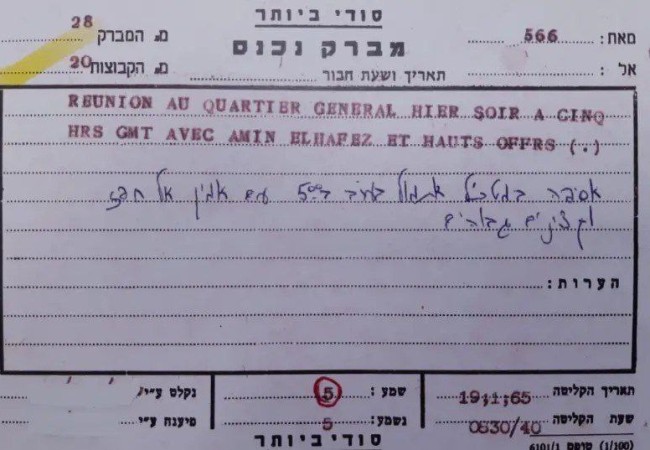 סודי ביותר
מברק נכנס
מאת: 566
אל:
תאריך ושעת חבור
מ. המברק 28
מ. הקבוצות 20
REUNION AU QUARTIER GENERAL HIER SOIR A CINQ
HRS GMT AVEC AMIN ELHAFEZ ET HAUTS OFFRS (.)
אסיפה במטכ"ל אתמול בערב ב 5 עם אמין אל חפז
וקצינים גבוהים
הערות:
תאריך הקליטה 19;1;65
שעת הקליטה 0830/40
(1/100) טופס 6101/1
שמע: 5
נשמע: 5
סודי ביותר
נקלט ע"י
פיענח ע"י